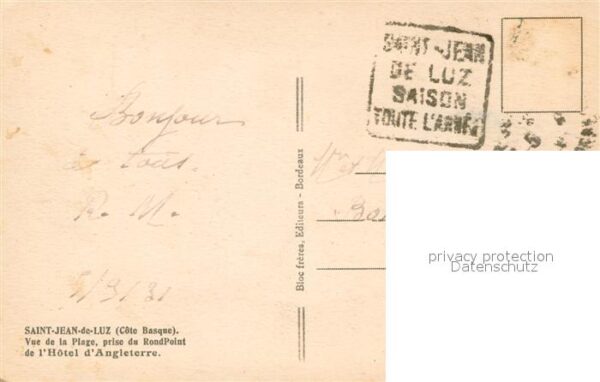 SAINT-JEAN
DE LUZ
SAISON
TOUTE L'ANNÉE
Bonjour
à tous.
R. M.
1/3/31
Bloc frères, Editeurs - Bordeaux
privacy protection
Datenschutz
SAINT-JEAN-de-LUZ (Côte Basque).
Vue de la Plage, prise du RondPoint
de l'Hôtel d'Angleterre.